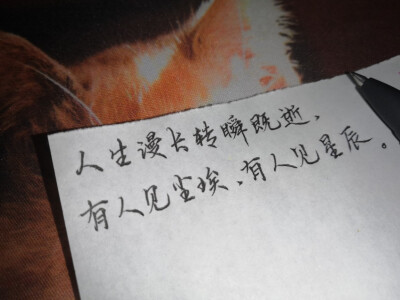 人生漫长转瞬既逝、
有人见尘埃、有人见星辰。